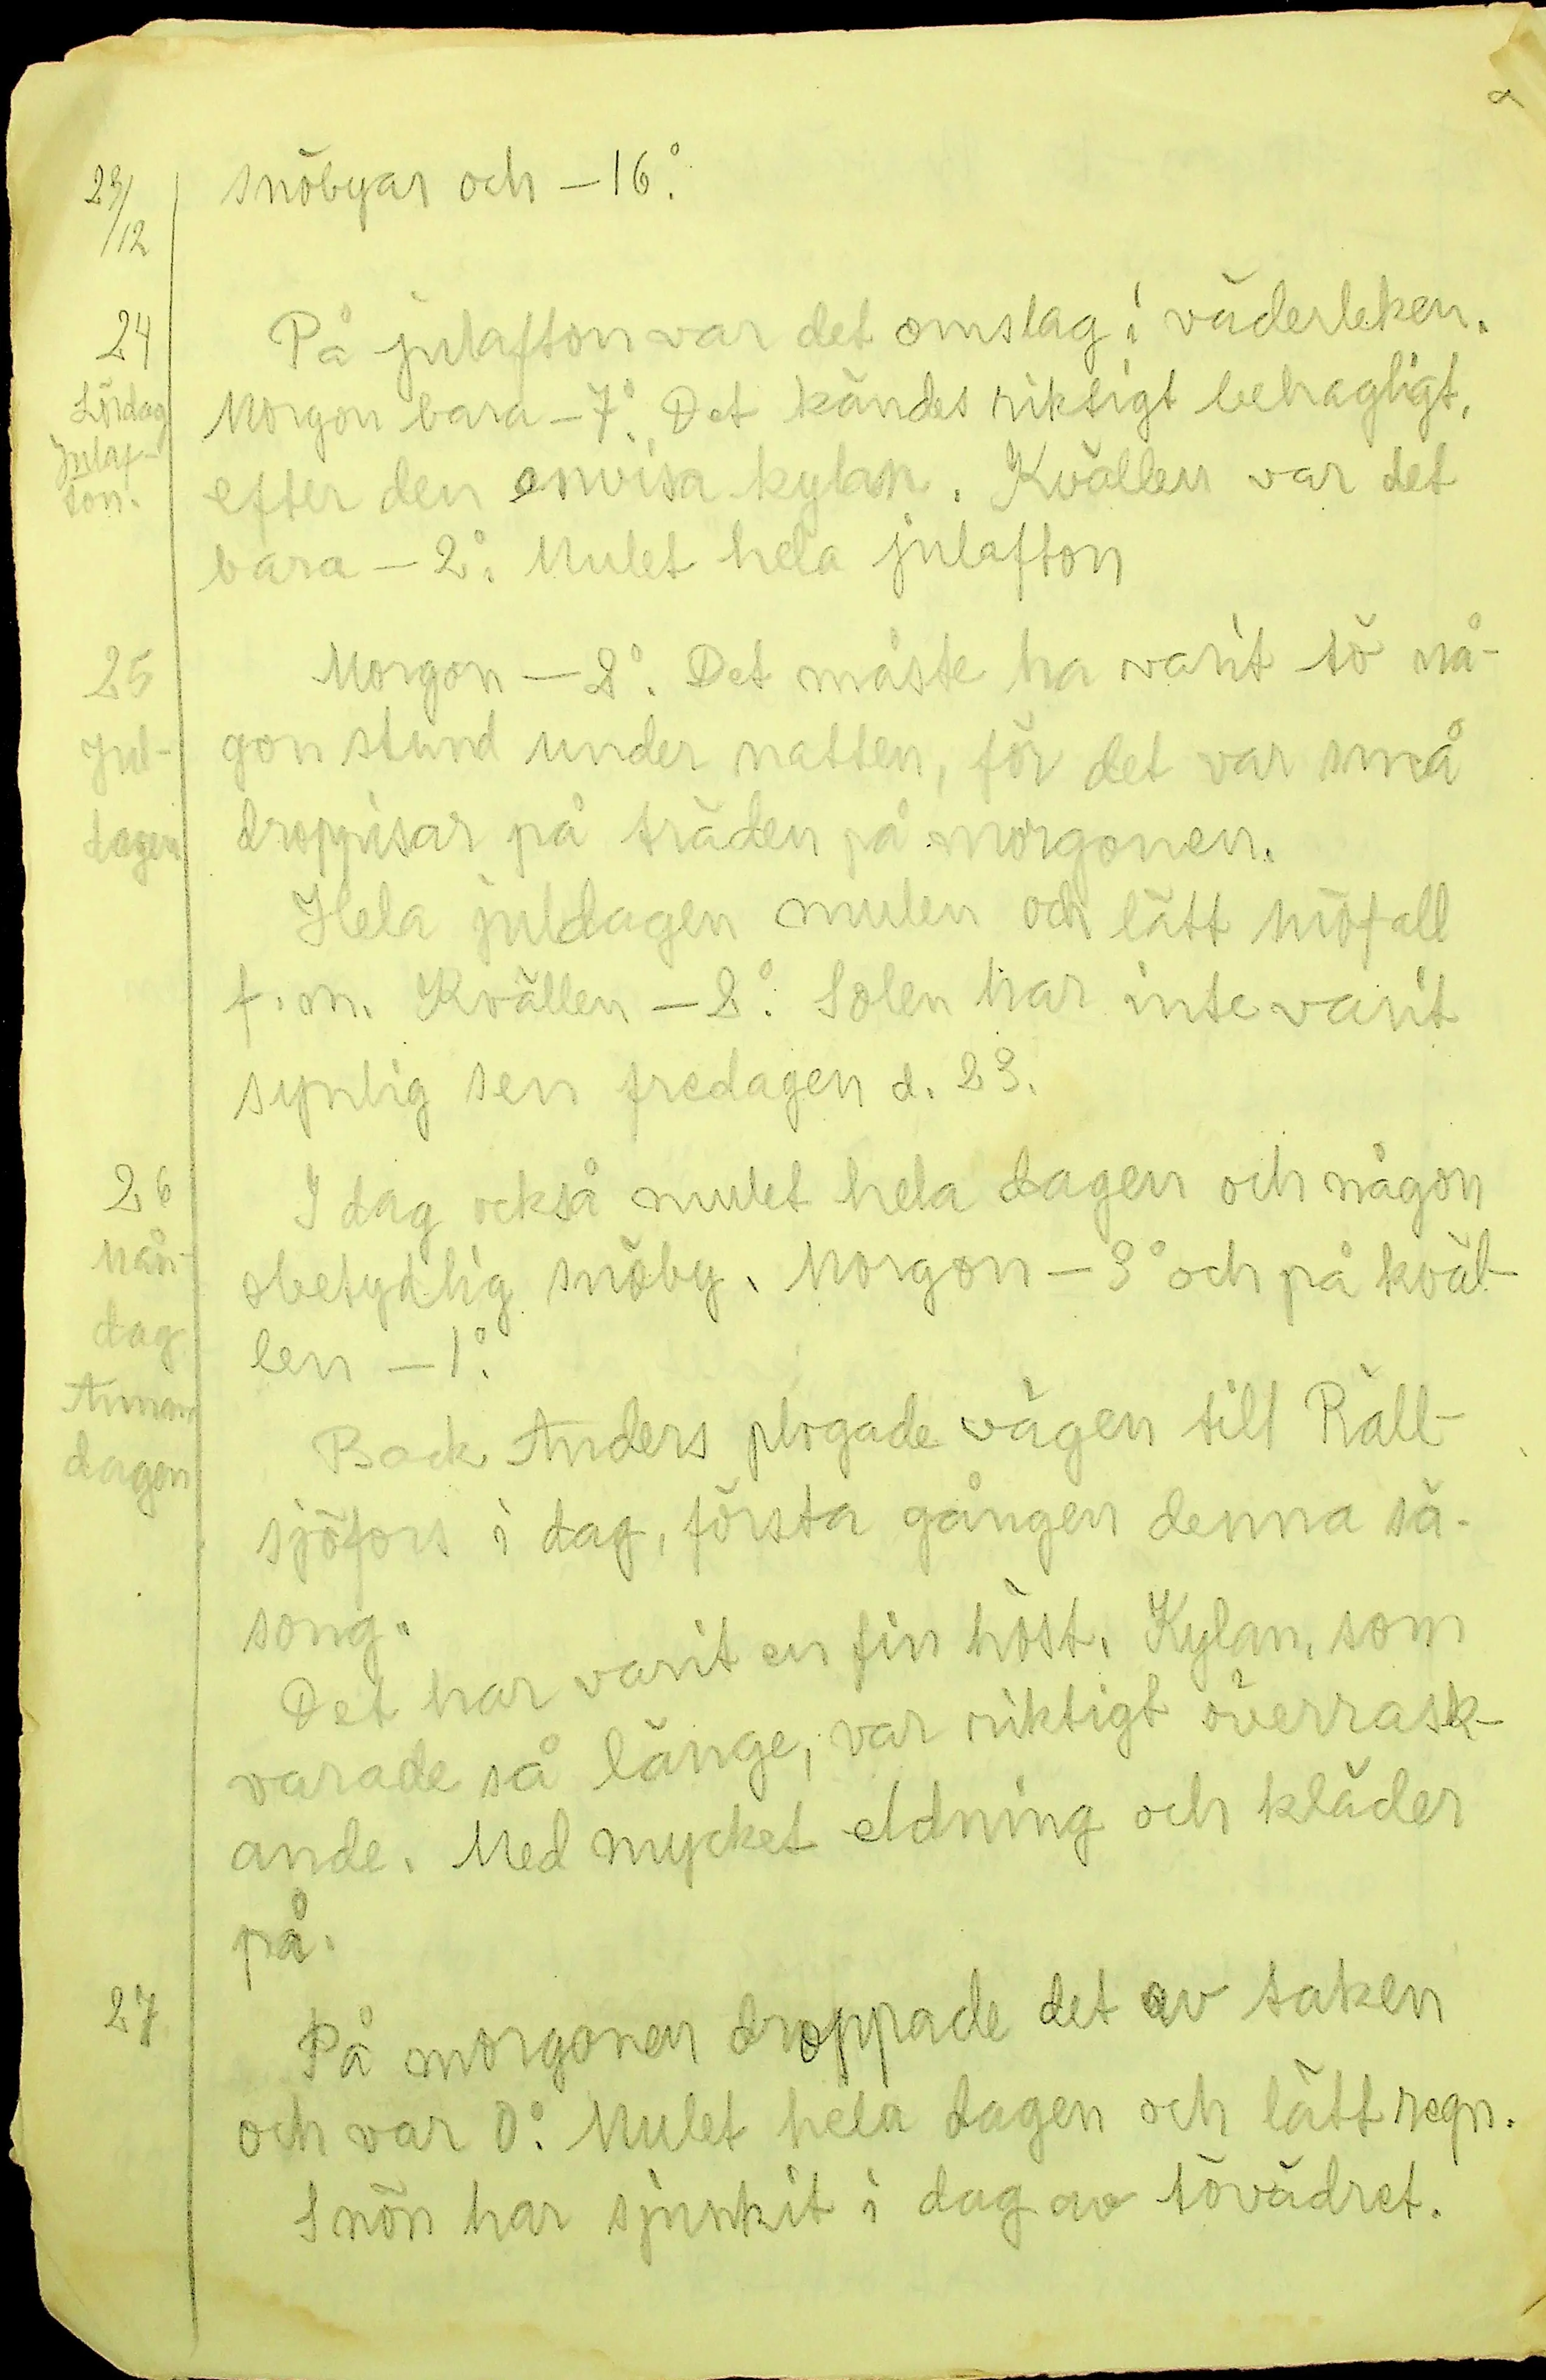 23/12 snöbyar och – 16°.
24 På julafton var det omslag i väderleken.
Lördag Morgon bara – 7°. Det kändes riktigt behagligt,
Julaf- efter den envisa kylan. Kvällen var det
ton. bara – 2°. Mulet hela julafton
25 Morgon – 2°. Det måste ha varit tö nå-
Jul- gon stund under natten, för det var små
dagen droppisar på träden på morgonen.
Hela juldagen mulen och lätt snöfall
f.m. Kvällen – 2°. Solen har inte varit
synlig sen fredagen d. 23.
26 I dag också mulet hela dagen och någon
Mån- obetydlig snöby. Morgon – 3° och på kväl-
dag len – 1°.
Annan Back Anders plogade vägen till Räll-
dagen
sjöfors i dag, första gången denna sä-
song.
Det har varit en fin höst. Kylan, som
varade så länge, var riktigt överrask-
ande. Med mycket eldning och kläder
på.
27 På morgonen droppade det av taken
och var 0°. Mulet hela dagen och lätt regn.
Snön har sjunkit i dag av tövädret.